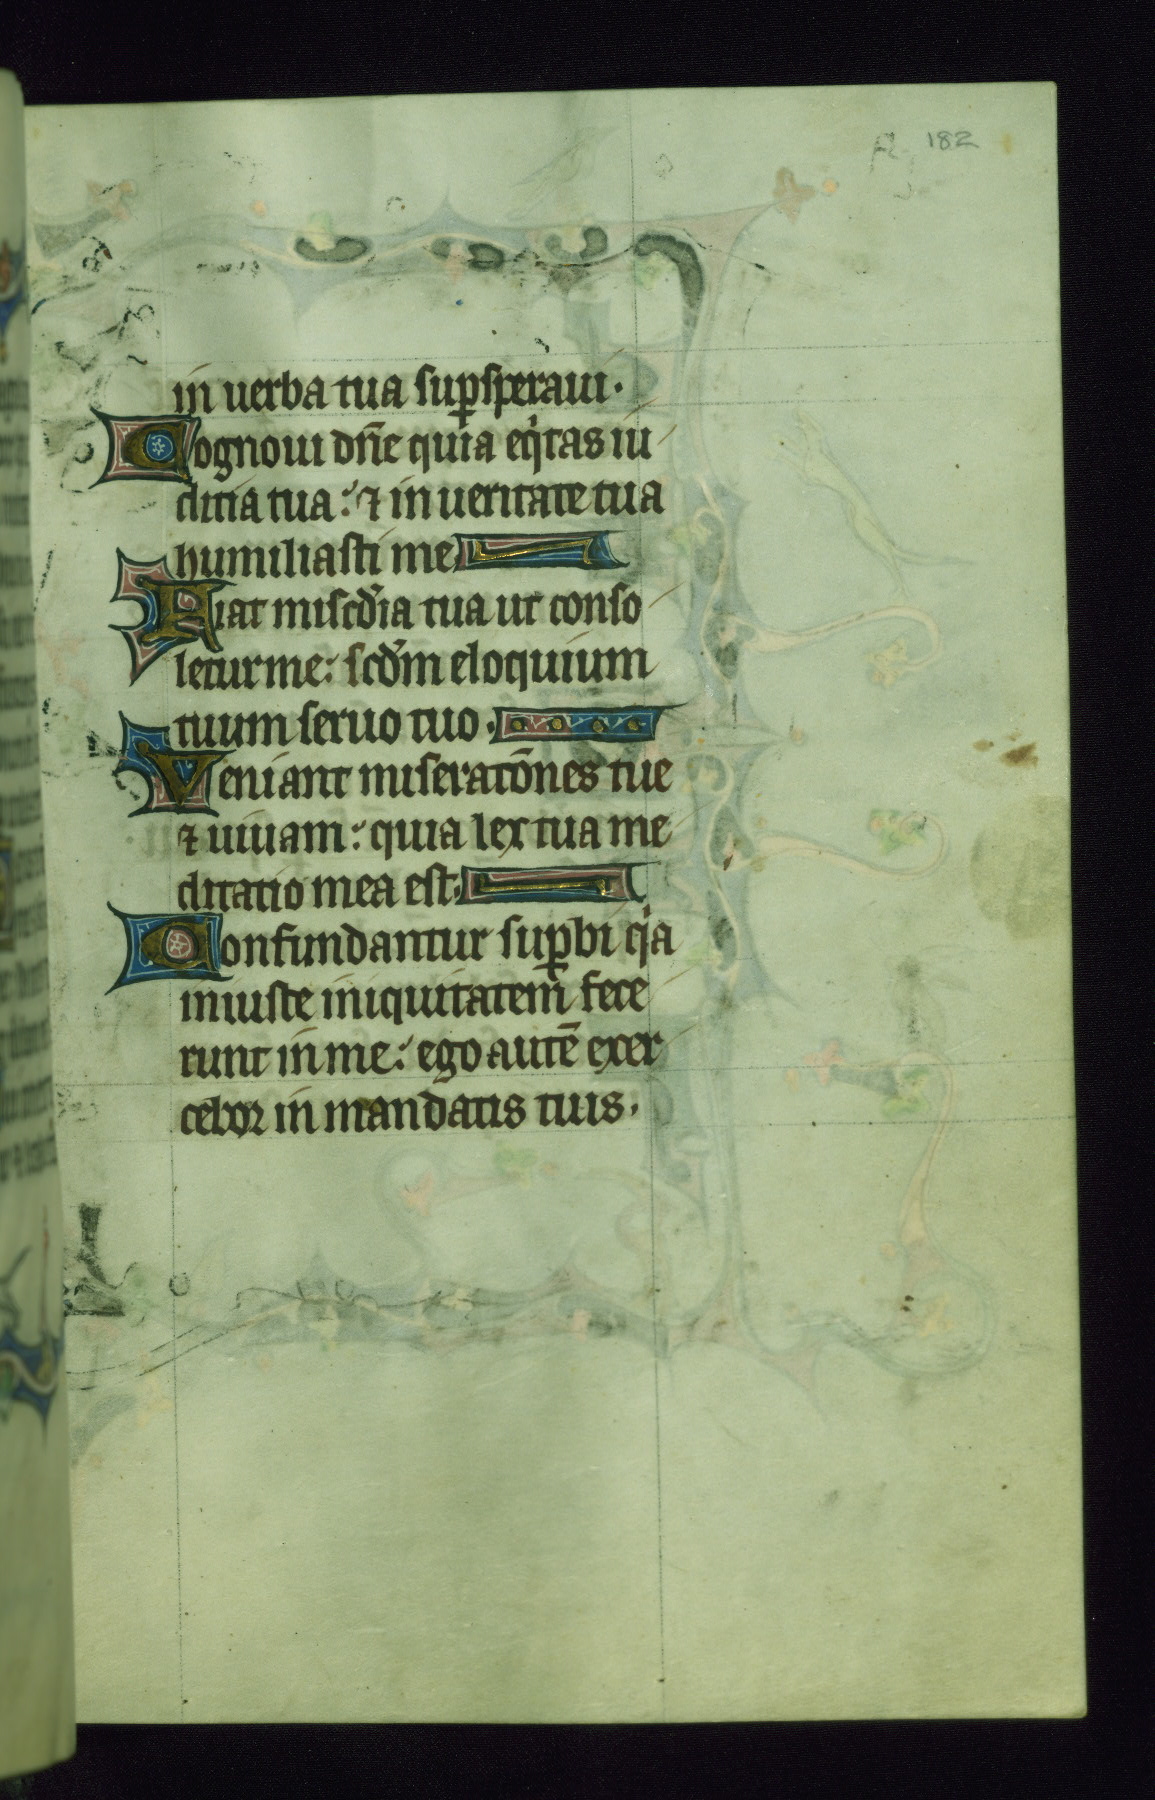 182
in uerba tua sup̱speraui·
Cognoui dn̄e quia eq̇tas iu
dicia tua: ⁊ in ueritate tua
humiliasti me
Fiat misc̄dia tua ut conso
letur me: scd̄m eloquium
tuum seruo tuo·
Veniant miserac̄ones tue
⁊ uiuam: quia lex tua me
ditatio mea est·
Confundantur sup̱bi q̇a
iniuste iniquitatem fece
runt in me: ego autē exer
cebor in mandatis tuis·